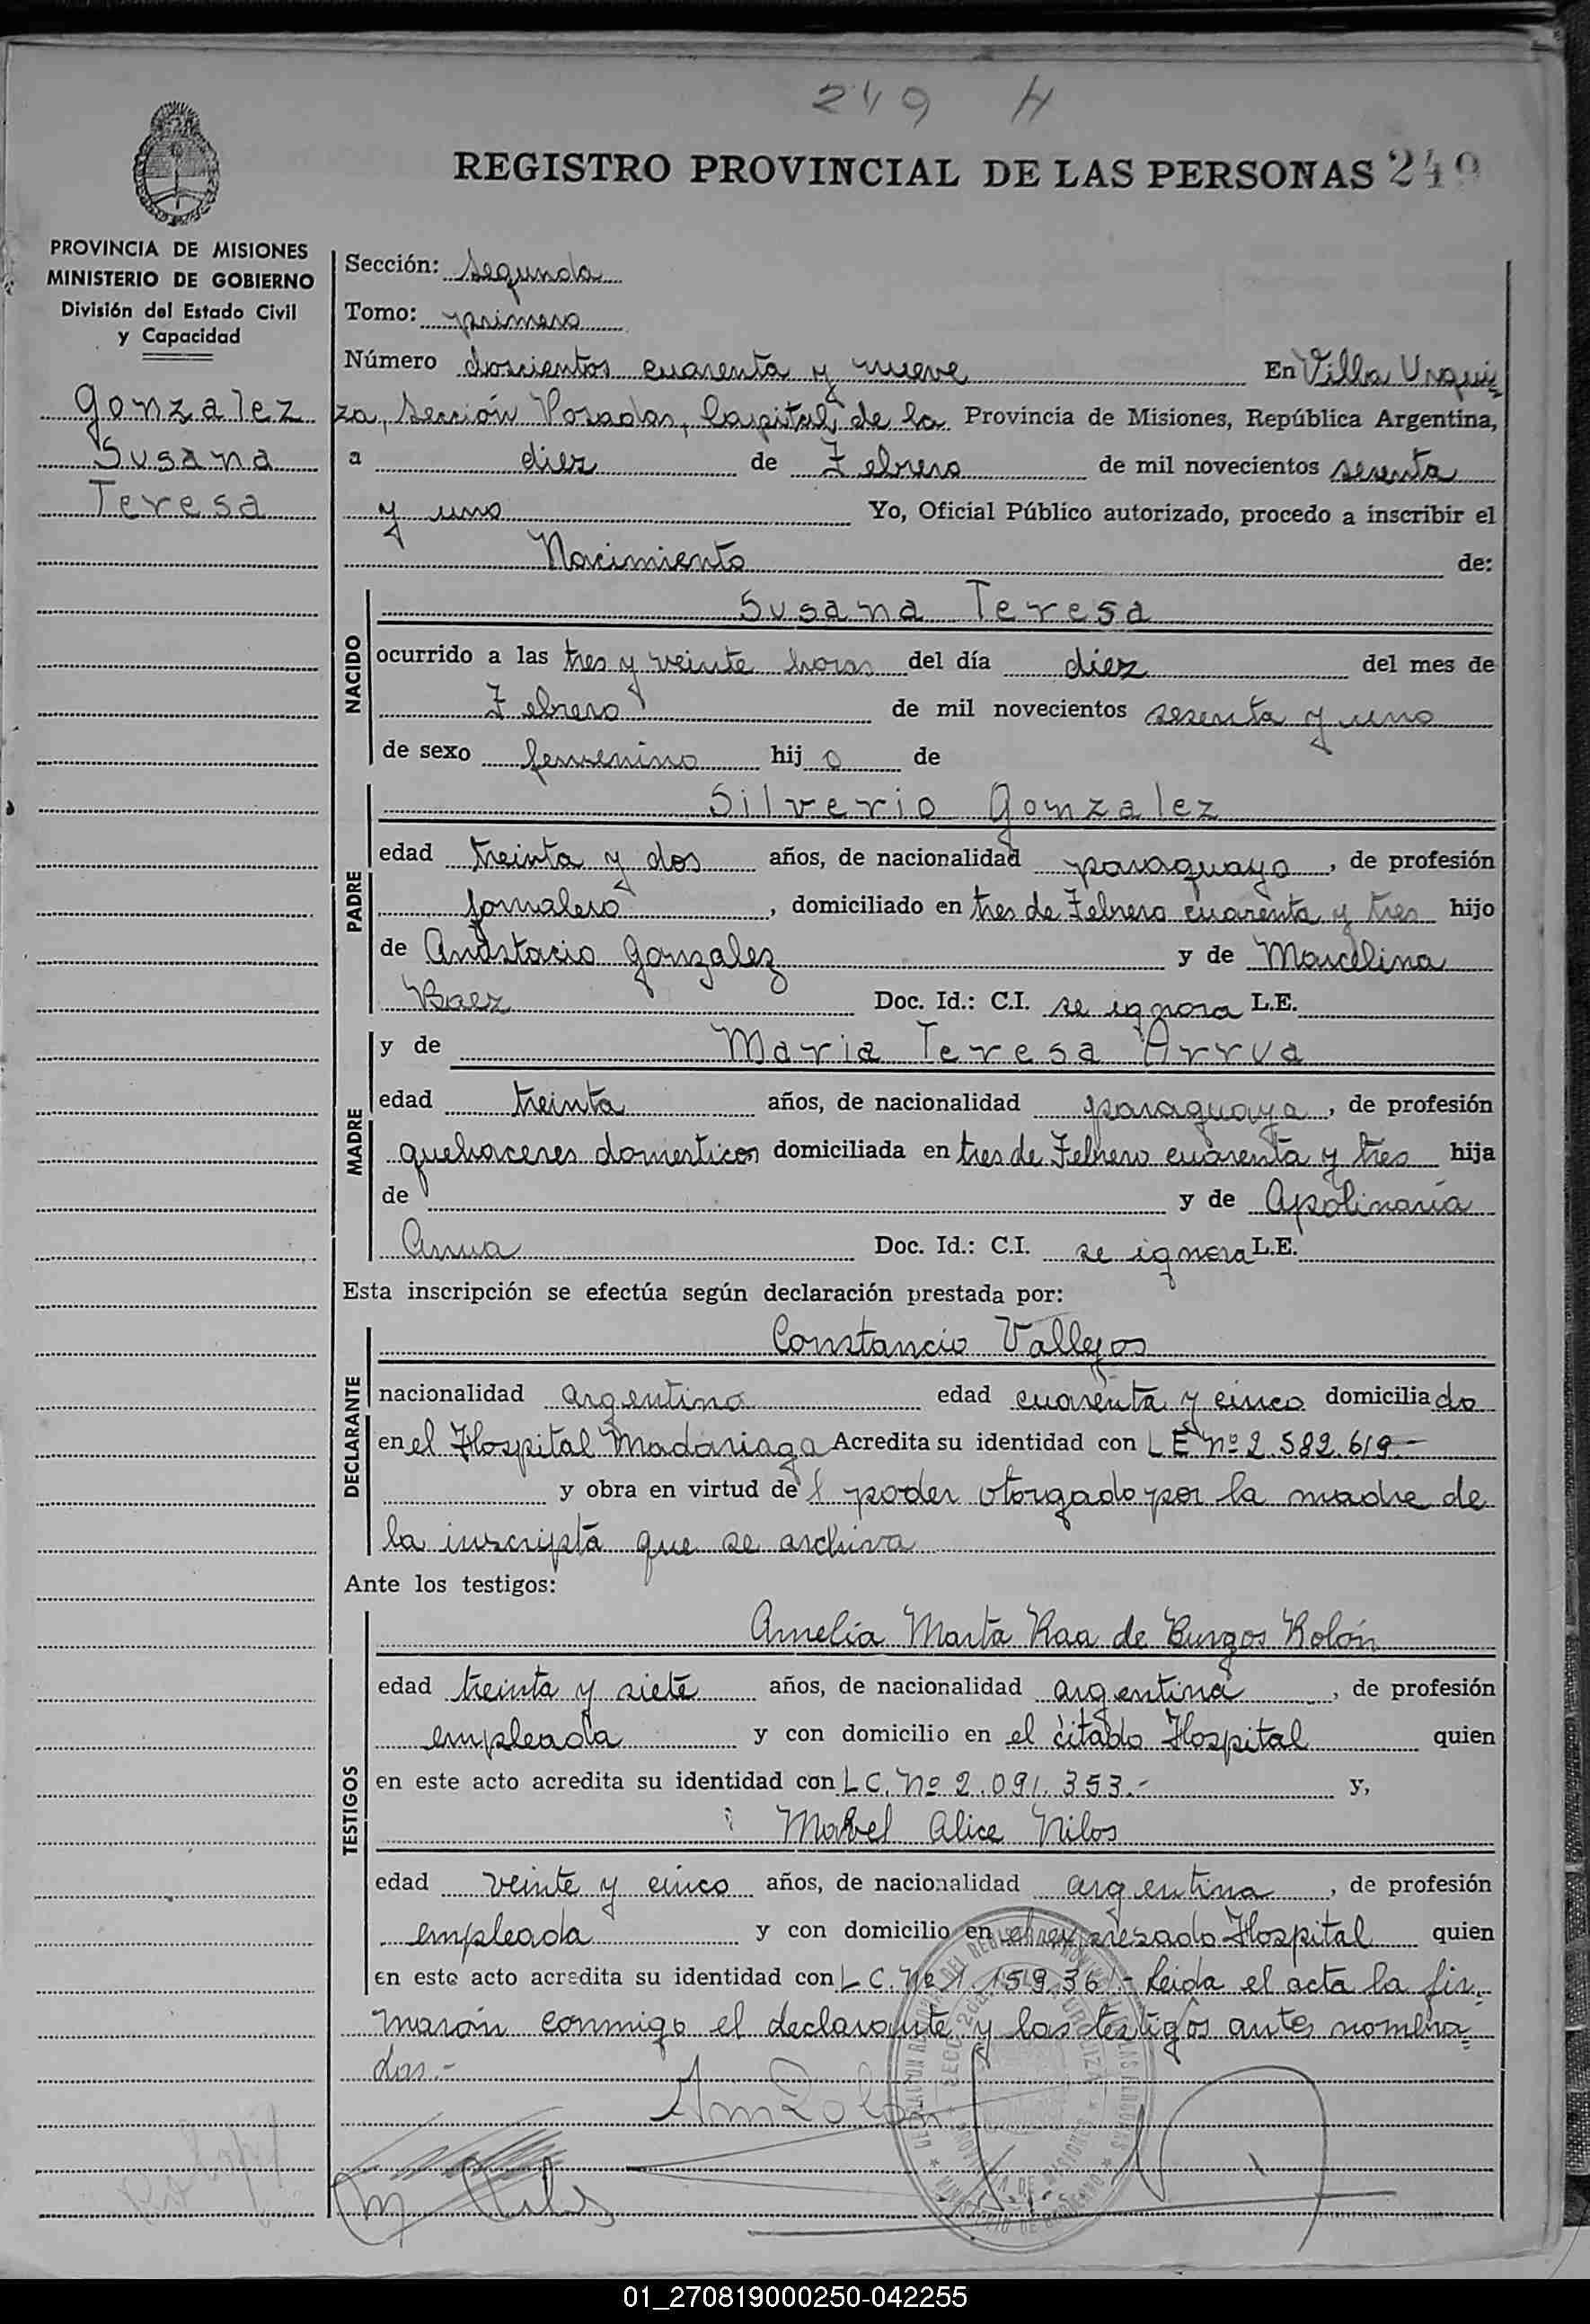 249 H
REGISTRO PROVINCIAL DE LAS PERSONAS 249
PROVINCIA DE MISIONES
MINISTERIO DE GOBIERNO
División del Estado Civil
y Capacidad
Gonzalez
Susana
Teresa
Sección: Segunda
Tomo: primero
Número doscientos cuarenta y nueve En Villa Urqui=
za, Sección Posadas, Capital, de la Provincia de Misiones, República Argentina,
a diez de Febrero de mil novecientos sesenta
y uno Yo, Oficial Público autorizado, procedo a inscribir el
Nacimiento de:
NACIDO
Susana Teresa
ocurrido a las tres y veinte horas del día diez del mes de
Febrero de mil novecientos sesenta y uno
de sexo femenino hij a de
PADRE
Silverio Gonzalez
edad treinta y dos años, de nacionalidad paraguayo, de profesión
jornalero, domiciliado en tres de Febrero cuarenta y tres hijo
de Anastacio Gonzalez y de Marcelina
Baez Doc. Id.: C.I. se ignora L.E.
MADRE
y de Maria Teresa Arrua
edad treinta años, de nacionalidad paraguaya, de profesión
quehaceres domesticos domiciliada en tres de Febrero cuarenta y tres hija
de y de Apolinaria
Arrua Doc. Id.: C.I. se ignora L.E.
Esta inscripción se efectúa según declaración prestada por:
DECLARANTE
Constancio Vallejos
nacionalidad argentina edad cuarenta y cinco domiciliado
en el Hospital Madariaga Acredita su identidad con L E nº 2.582.619.-
y obra en virtud del poder otorgado por la madre de
la inscripta que se archiva
Ante los testigos:
TESTIGOS
Amelia Marta Raa de Burgos Rolón
edad treinta y siete años, de nacionalidad argentina, de profesión
empleada y con domicilio en el citado Hospital quien
en este acto acredita su identidad con L C. Nº 2.091.353.- y,
Mabel Alice Nilos
edad veinte y cinco años, de nacionalidad argentina, de profesión
empleada y con domicilio en el expresado Hospital quien
en este acto acredita su identidad con L C. Nº 1.159.361- Leida el acta la fir=
marón conmigo el declarante y los testigos antes nombra=
dos.-
01_270819000250-042255